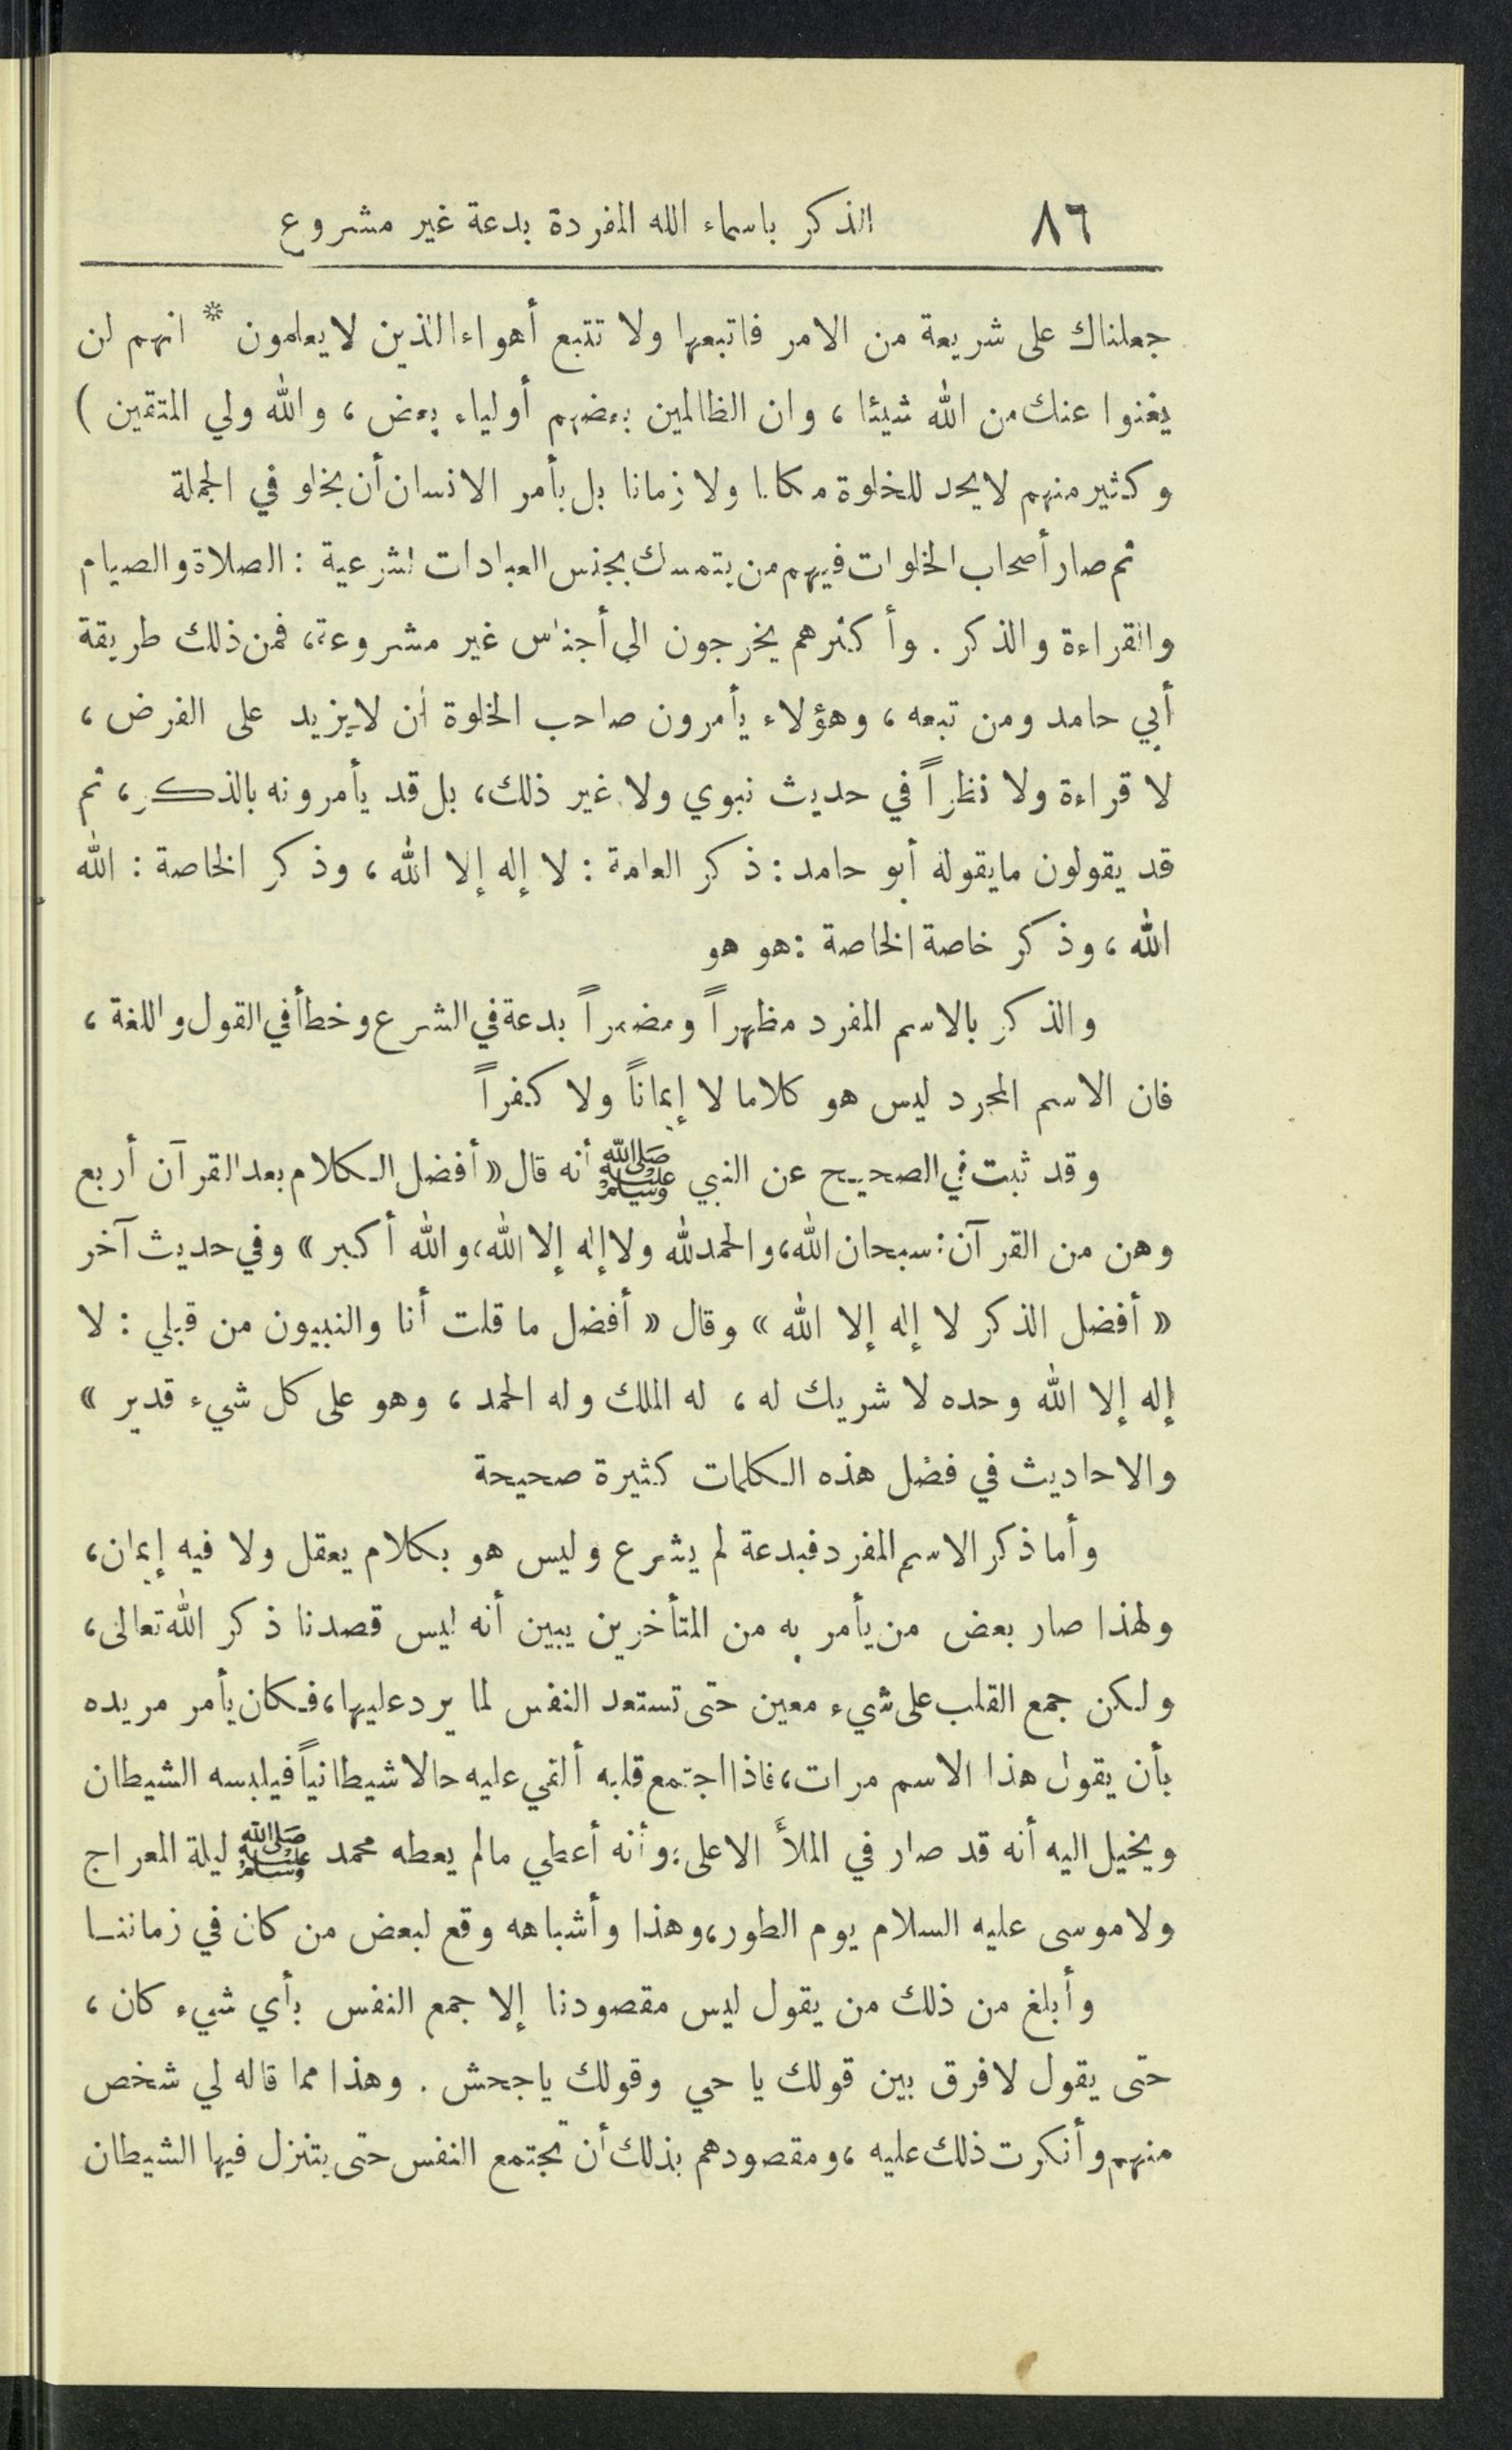 ٨٦ الذكر باسماء الله المفردة بدعة غير مشروع
جعلناك على شريعة من الامر فاتبعها ولا تتبع أهواء الذين لا يعلمون * انهم لن
يغنوا عنك من الله شيئا ، وان الظالمين بعضهم أولياء بعض ، والله ولي المتقين )
وكثير منهم لا يحد للخلوة مكانا ولا زمانا بل يأمر الانسان أن يخلو في الجملة
ثم صار أصحاب الخلوات فيهم من يتمسك بجنس العبادات الشرعية : الصلاة والصيام
والقراءة والذكر . وأكثرهم يخرجون الى أجناس غير مشروعة ، فمن ذلك طريقة
أبي حامد ومن تبعه ، وهؤلاء يأمرون صاحب الخلوة أن لا يزيد على الفرض ،
لا قراءة ولا نظراً في حديث نبوي ولا غير ذلك ، بل قد يأمرونه بالذكر ، ثم
قد يقولون ما يقوله أبو حامد : ذكر العامة : لا إله إلا الله ، وذكر الخاصة : الله
الله ، وذكر خاصة الخاصة : هو هو
والذكر بالاسم المفرد مظهراً ومضمراً بدعة في الشرع وخطأ في القول واللغة ،
فان الاسم المجرد ليس هو كلاما لا إيماناً ولا كفراً
وقد ثبت في الصحيح عن النبي ﷺ أنه قال « أفضل الكلام بعد القرآن أربع
وهن من القرآن : سبحان الله ، والحمد لله ولا إله إلا الله ، والله أكبر » وفي حديث آخر
« أفضل الذكر لا إله إلا الله » وقال « أفضل ما قلت أنا والنبيون من قبلي : لا
إله إلا الله وحده لا شريك له ، له الملك وله الحمد ، وهو على كل شيء قدير »
والاحاديث في فضل هذه الكلمات كثيرة صحيحة
وأما ذكر الاسم المفرد فبدعة لم يشرع وليس هو بكلام يعقل ولا فيه إيمان ،
ولهذا صار بعض من يأمر به من المتأخرين يبين أنه ليس قصدنا ذكر الله تعالى ،
ولكن جمع القلب على شيء معين حتى تستعد النفس لما يرد عليها ، فكان يأمر مريده
بأن يقول هذا الاسم مرات ، فاذا اجتمع قلبه ألقي عليه حالا شيطانياً فيلبسه الشيطان
ويخيل اليه أنه قد صار في الملأ الاعلى ؛ وأنه أعطي ما لم يعطه محمد ﷺ ليلة المعراج
ولا موسى عليه السلام يوم الطور ، وهذا وأشباهه وقع لبعض من كان في زماننا
وأبلغ من ذلك من يقول ليس مقصودنا إلا جمع النفس بأي شيء كان ،
حتى يقول لا فرق بين قولك يا حي وقولك يا جحش . وهذا مما قاله لي شخص
منهم وأنكرت ذلك عليه ، ومقصودهم بذلك أن تجتمع النفس حتى يتنزل فيها الشيطان